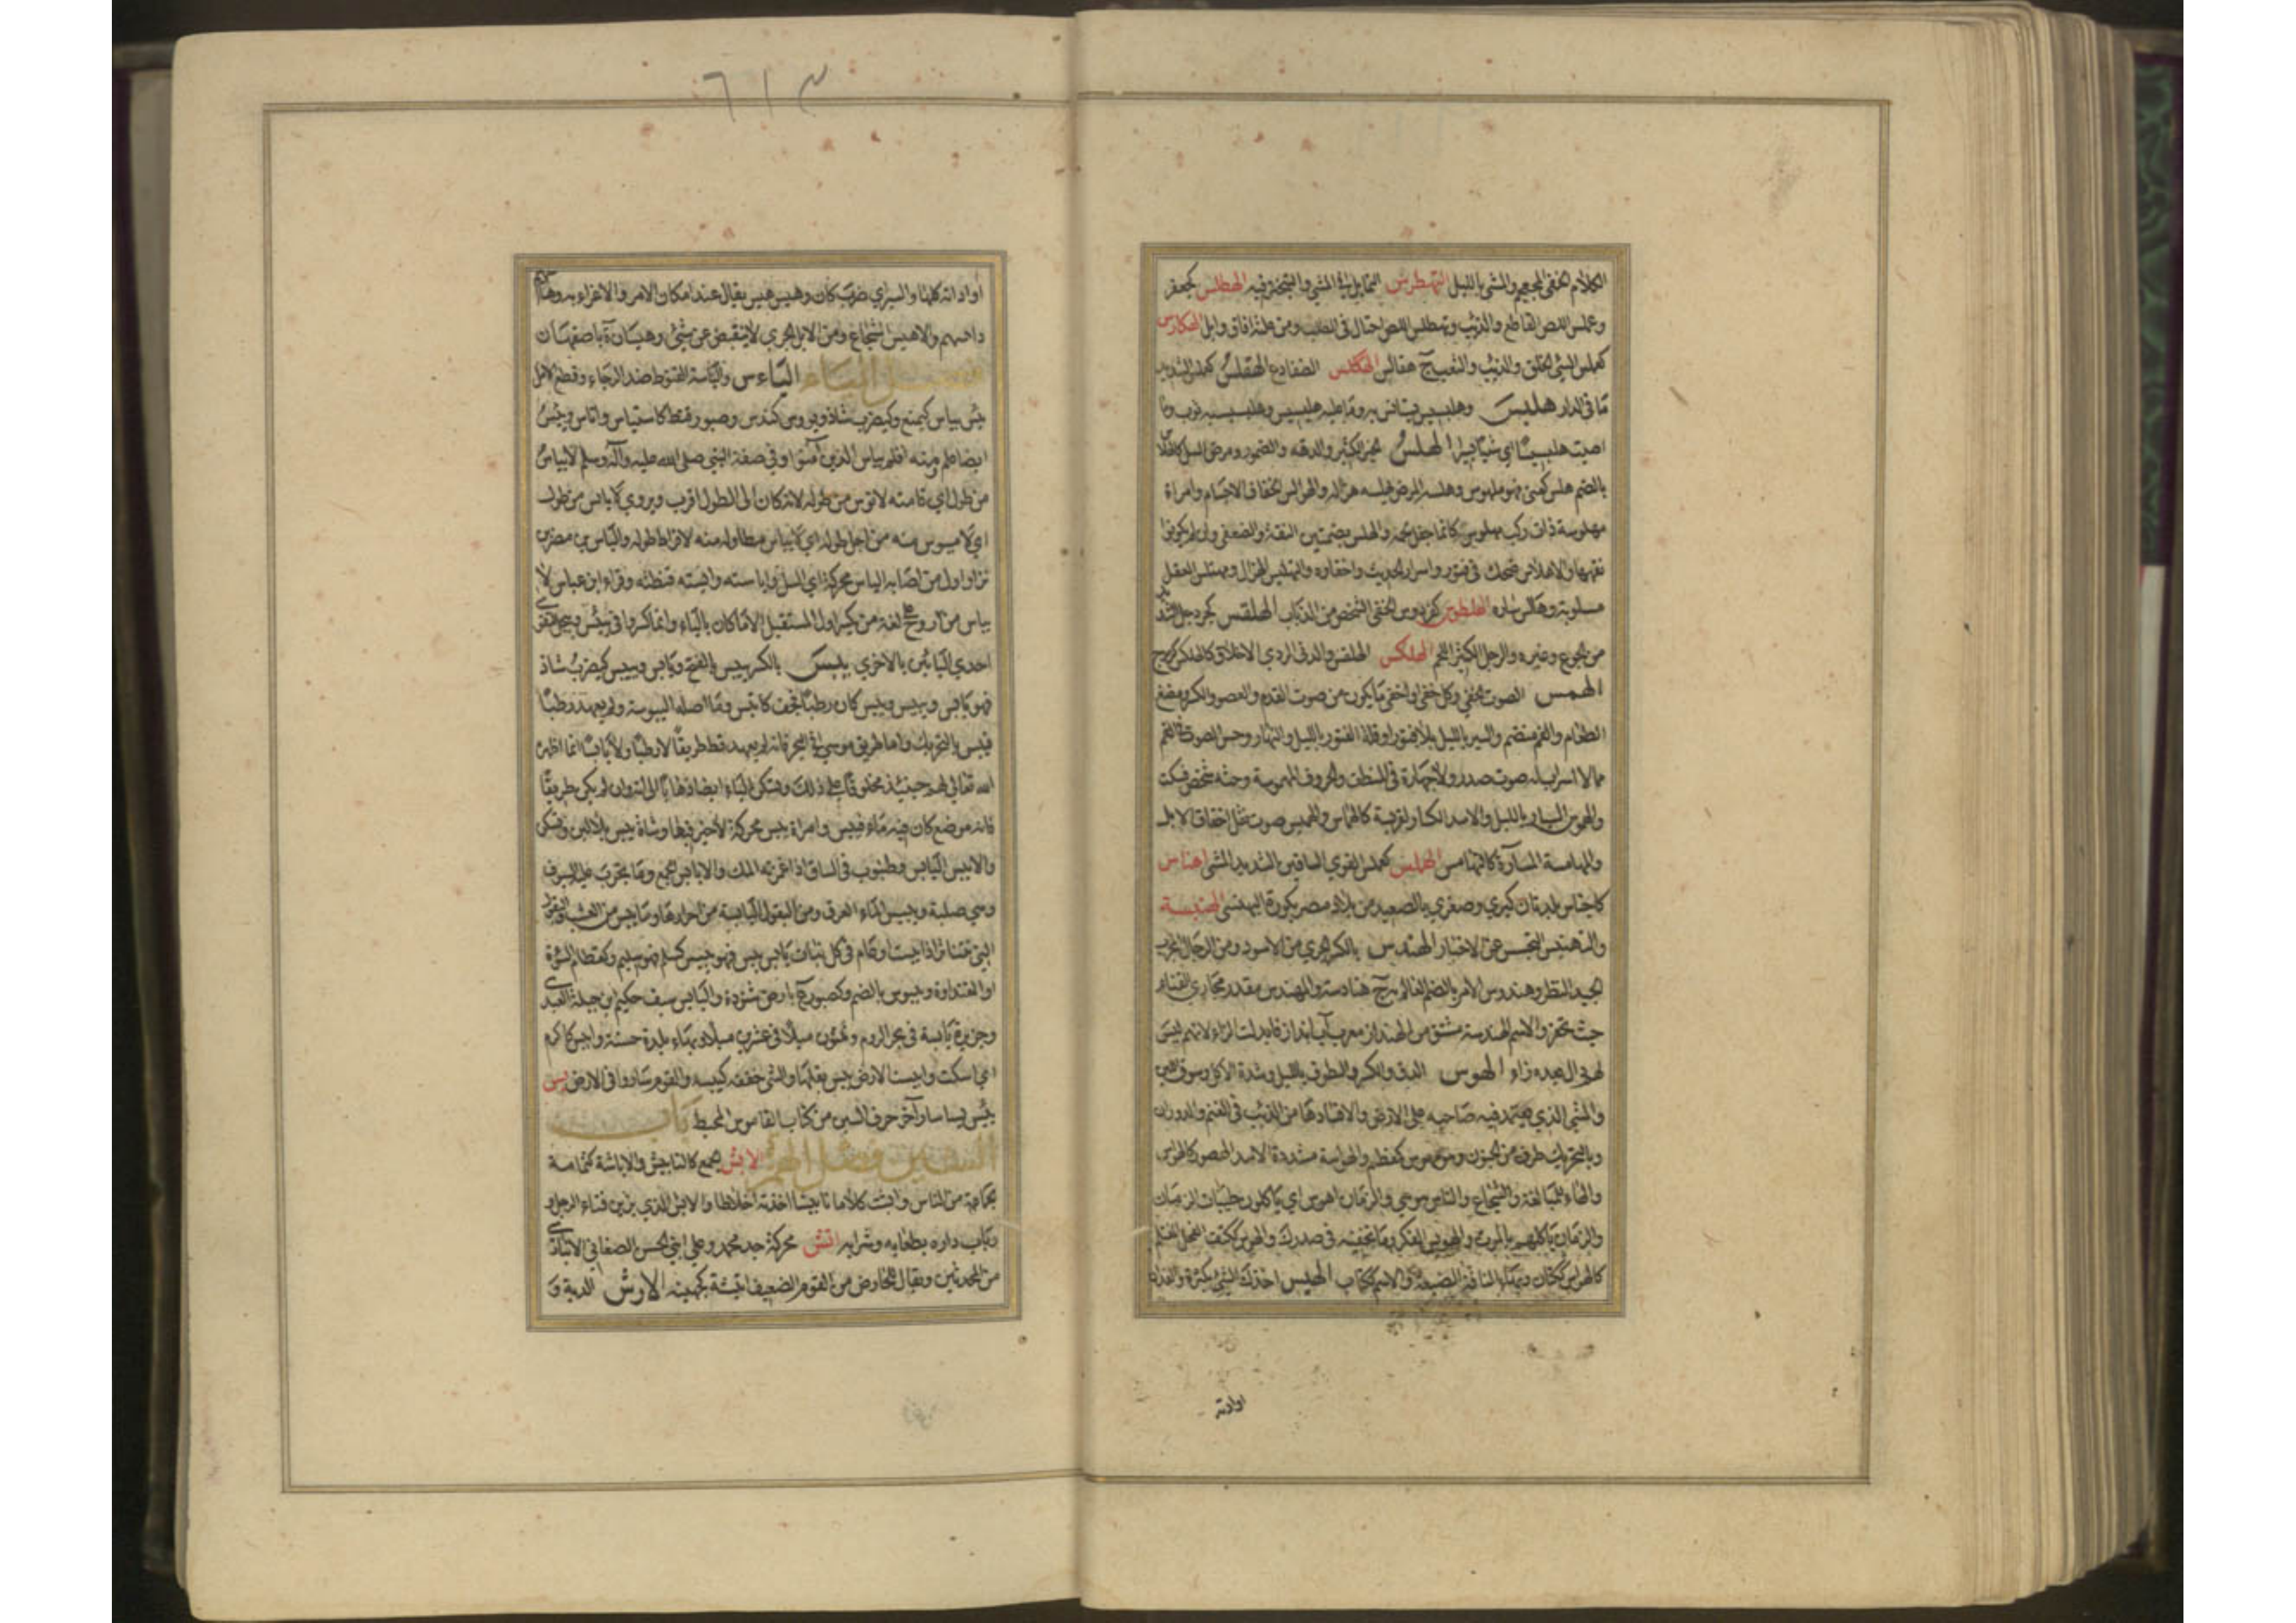 الكلام الخفي المجمجم والمشي بالليل التهطرس التمايل في المشي والتبختر فيه الهطلس كجعفر
وعملس اللص القاطع والذئب وتهطلس اللص احتال في الطلب ومن علته افاق وابل الهكارس
كعملس السيئ الخلق والذئب والثعلب ج هقالس الهكلس الضفادع الهقلس كعملس الشديد
ما في الدار هلبس وهلبسيس يستانس به وما عليه هلبسيس وهلبسيسة ثوب وما
اصبت هلبسيسا اي شيئا يسيرا الهلس الخير الكثير والدقة والضمور ومرض السل كالهلاس
بالضم هلس كعني فهو مهلوس وهلسه المرض يهلسه هزله والهوالس الخفاف الاجسام وامراة
مهلوسة ذات ركب مهلوس كانما جفل لحمه والهلس بضمتين النقه والضعفى وان لم يكونوا
نقها والاهلاس ضحك في فتور واسرار الحديث واخفاوه والتهليس الهزال ومهتلس العقل
مسلوبه وهالس ساره الهلطوس كفردوس الخفي الشخص من الذئاب الهلقس كجردحل الشديد
من الجوع وغيره والرجل الكثير اللحم الهلكس الهلقس والدني الردي الاخلاق كالهلكس كزبرج
الهمس الصوت الخفي وكل خفي او اخفى ما يكون من صوت القدم والعصر والكسر ومضغ
الطعام والفم منضم والسير بالليل بلا فتور او قلة الفتور بالليل والنهار وحس الصوت في الفم
مما لا اسراب له من صوت الصدر ولا جهارة في المنطق والحروف المهموسة حثه شخص فسكت
والهموس السيار بالليل والاسد الكسار لفريسته كالهماس والهميس صوت نقل اخفاف الابل
والمهامسة المسارة كالتهامس الهملس كعملس القوي الساقين الشديد المشي اهناس
كاجناس بلدتان كبرى وصغرى بالصعيد من بلاد مصر بكورة البهنسى الهنبسة
والتهنبس التحسس عن الاخبار الهندس بالكسر الجري من الاسود ومن الرجال المجرب
الجيد النظر وهندوس الامر بالضم العالم به ج هنادسة والمهندس مقدر مجاري القني
حيث تحفر والاسم الهندسة مشتق من الهنداز معرب آب انداز فابدلت الزاء لانه ليس
لهم دال بعده زاء الهوس الدق والكسر والطوف بالليل وشدة الاكل وسوق اللين
والمشي الذي يعتمد فيه صاحبه على الارض والافساد هاس الذئب في الغنم والدوران
وبالتحريك طرف من الجنون وهو مهوس كمعظم والهواسة مشددة الاسد الهصور كالهواس
والهاء للمبالغة والشجاع والناس هوسى والزمان اهوس اي ياكلون طيبات الزمان
والزمان ياكلهم بالموت والهويس الفكر وما تخفيه في صدرك والهوس ككتف الفحل المغتلم
كالهواس ككتان وبهاء الناقة الضبعة والاسم ككتاب الهيس اخذك الشيء بكثرة والفدان
اوادته
٦١٣
او اداته كلها والسير اي ضرب كان وهيس هيس يقال عند امكان الامر والاغراء به وهاسهم
داسهم والاهيس الشجاع ومن الابل الجري لا ينقبض عن شيء وهيسان ة باصفهان
فصل الياء الياءس والياسة القنوط ضد الرجاء وقطع الامل
يئس يياس كيمنع وكيضرب شاذ وهو يوس كندس وصبور قنط كاستياس واتاس ويئس
ايضا علم ومنه افلم يياس الذين آمنوا وفي صفة النبي صلى الله عليه وآله وسلم لا ياس
من طول اي قامته لا تؤيس من طوله لانه كان الى الطول اقرب ويروى لا يائس من طول
اي لا ميوس منه من اجل طوله اي لا يياس مطاوله منه لافراط طوله والياس بن مضر بن
نزار اول من اصابه الياس محركة اي السل واياسته وايسته قنطته وقراء ابن عباس لا
يياس من روح الله لغة من يكسر اول المستقبل الا ما كان بالياء وانما كسروا في ييئس وييجل لتقوي
احدى اليائين بالاخرى يبس بالكسر ييبس بالفتح ويابس وييبس كيضرب شاذ
فهو يابس ويبيس ويبس كان رطبا فجف كاتبس وما اصله اليبوسة ولم يعهد رطبا
فيبس بالتحريك واما طريق موسى في البحر فانه لم يعهد قط طريقا لا رطبا ولا يابسا انما اظهره
الله تعالى لهم حينئذ مخلوقا على ذلك وتسكن الباء ايضا ذهابا الى انه وان لم يكن طريقا
فانه موضع كان فيه ماء فيبس وامراة يبس محركة لا خير فيها وشاة يبس بلا لبن وتسكن
والايبس اليابس وظنبوب في الساق اذا غمزته آلمك والايابس الجمع وما تجرب عليه السيوف
وهي صلبة ويبيس الماء العرق ومن البقول اليابسة من احرارها وما يبس من العشب والبقول
التي تتناثر اذا يبست او عام في كل نبات يابس يبس فهو يبيس كسلم فهو سليم وكقطام السوءة
او الفندورة ويبوس بالضم وكصبور ع بارض شنوءة واليابس سيف حكيم بن جبلة العبدي
وجزيرة يابسة في بحر الروم وثلثون ميلا في عشرين ميلا وبها بلدة حسنة وايبس كاكرم
اي اسكت وايبست الارض يبس بقلها والشيء جففه كيبسه والقوم ساروا في الارض يس
ييس يسا سار وآخر حرف السين من كتاب القاموس المحيط باب
الشين فصل الهمزة الابش الجمع كالتابيش والاباشة كثمامة
جماعة من الناس وابشت كلاما تابيشا اخذته اخلاطا والابش الذي يزين فناء الرجل و
باب داره بطعامه وشرابه اتش محركة جد محمد وعلي ابني الحسن الصغاني الانباري
من المحدثين ويقال للحارض من القوم الضعيف اتيشة كجهينة الارش الدية و